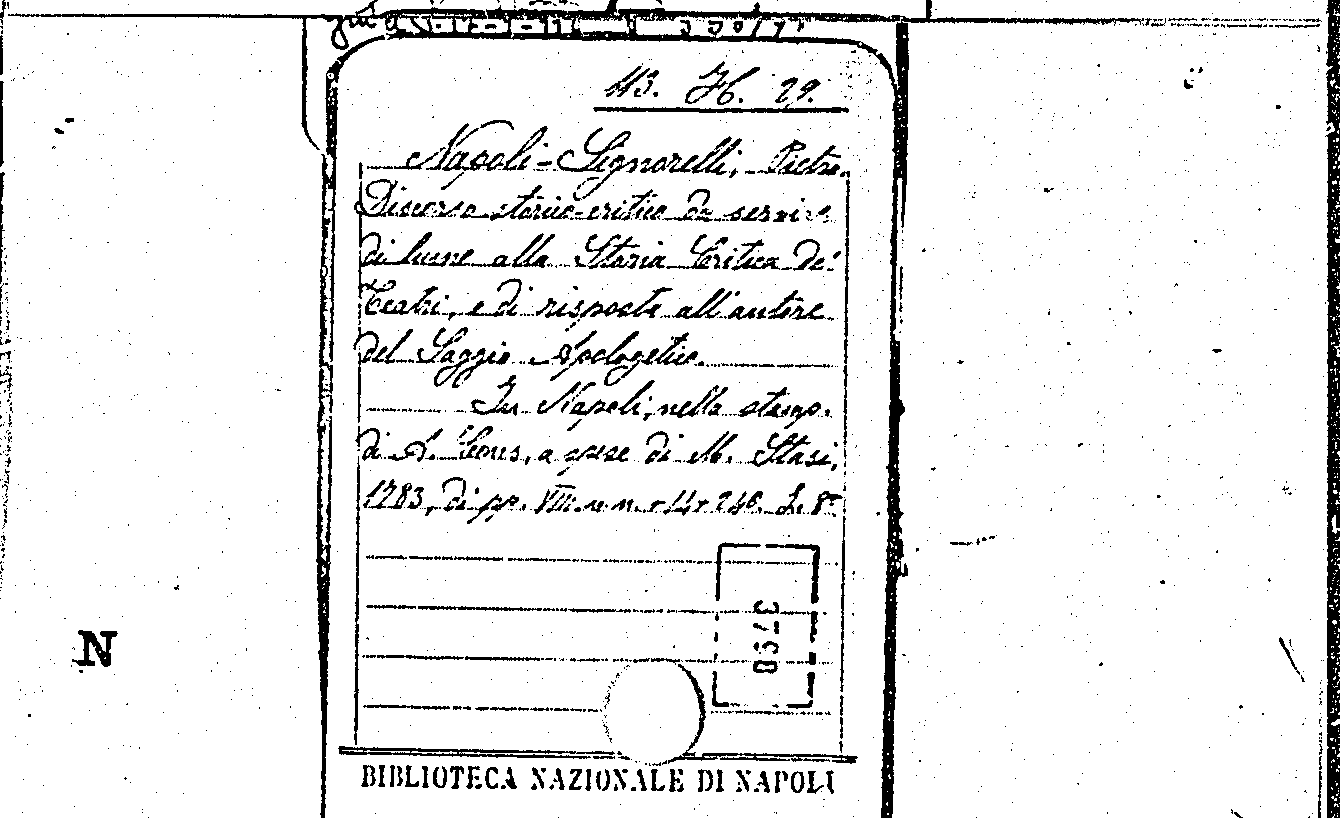 113. H. 29.
Napoli-Signorelli, Pietro.
Discorso storico-critico da servire
di lume alla Storia Critica de'
Teatri, e di risposta all'autore
del Saggio Apologetico.
In Napoli, nella stamp.
di A. Cons, a spese di M. Stasi,
1783, di pp. VIII n. n. + 14 + 246. In 8º
3798
N
BIBLIOTECA NAZIONALE DI NAPOLI